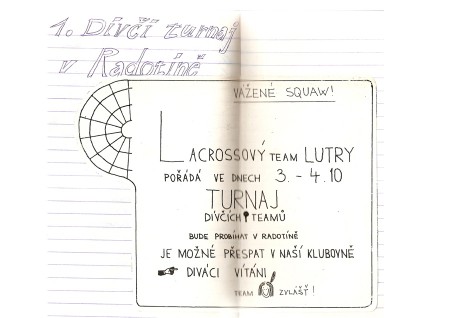 1. Dívčí turnaj
v Radotíně
VÁŽENÉ SQUAW!
LACROSSOVÝ TEAM LUTRY
POŘÁDÁ VE DNECH 3. - 4.10
TURNAJ
DÍVČÍCH TEAMŮ
BUDE PROBÍHAT V RADOTÍNĚ
JE MOŽNÉ PŘESPAT V NAŠÍ KLUBOVNĚ
DIVÁCI VÍTÁNI
TEAM ZVLÁŠŤ!